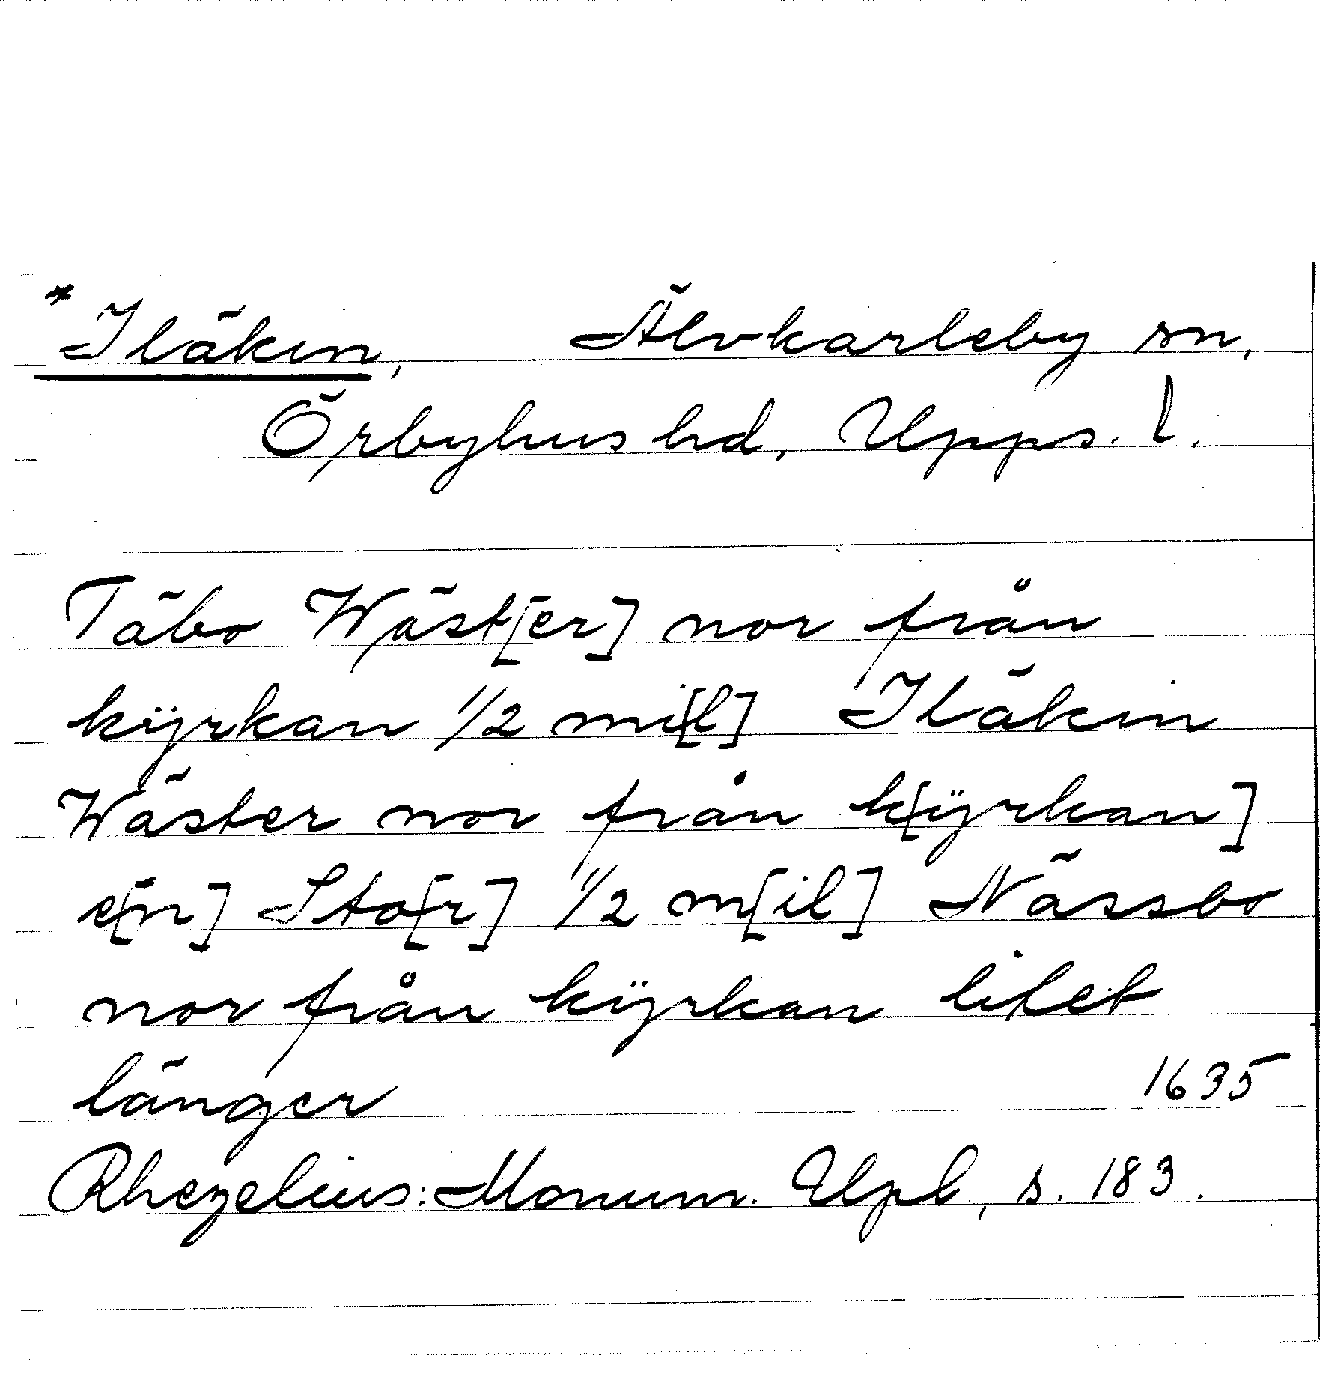 *Iläkin, Älvkarleby sn,
Örbyhus hd, Upps. l.
Täbo Wäst[er] nor från
kÿrkan 1/2 mi[l] Iläkin
Wäster nor från k[ÿrkan]
e[n] Sto[r] 1/2 m[il] Nässbo
nor från kÿrkan litet
länger 1635
Rhezelius: Monum. Upl, s. 183.